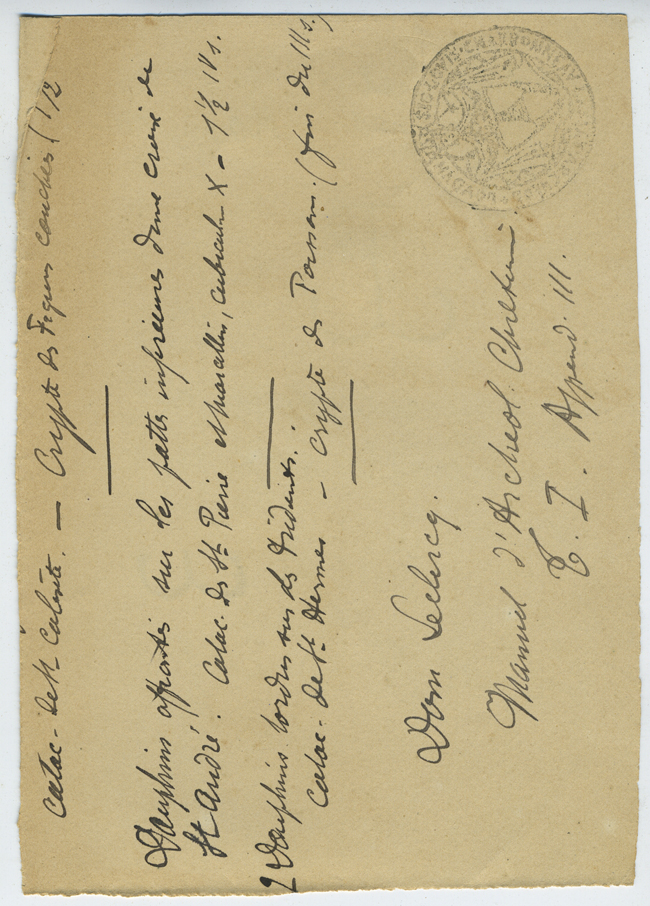 Catac. de St Calixte. — Crypte des Figures couchées (1/2
Dauphins affrontés sur les pattes inférieures d'une croix de
St André. Catac. des Sts Pierre et Marcellin, cubiculum X – 1 1/2 IV s.
2 Dauphins tordus sur des tridents.
Catac. de St Hermes – Crypte des Poissons. (fin du III s.)
Dom Leclercq.
Manuel d'Archéol. Chrétienne.
T. I. Append. III.
LOUIS CHARBONNEAU